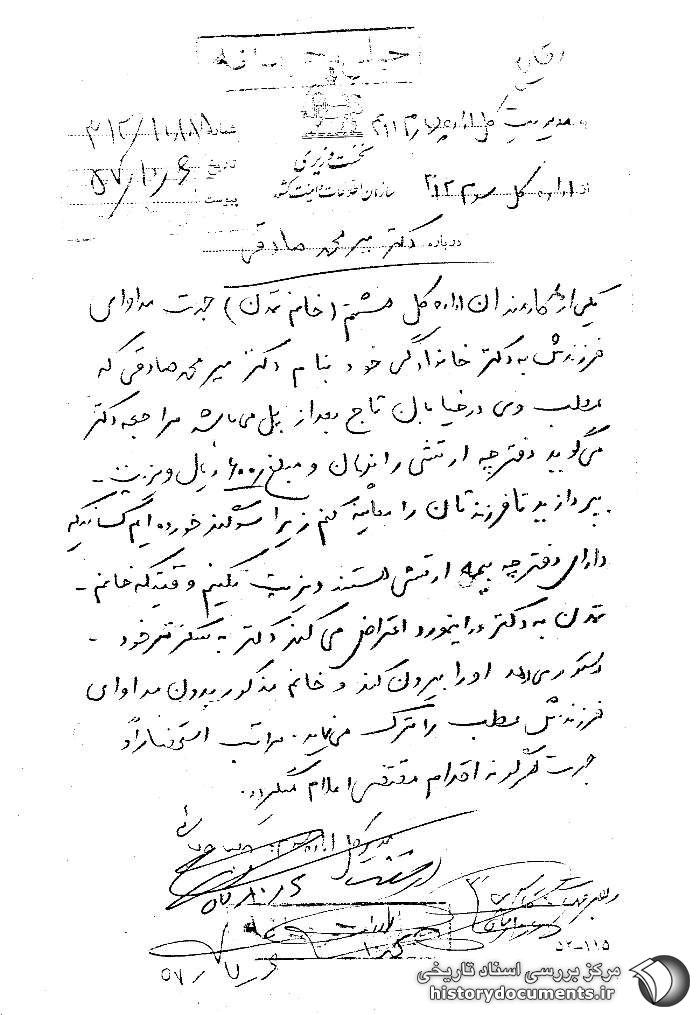 خیلی محرمانه
به مدیریت کل اداره چهارم
شماره ۳۱۲/
نخست وزیری
تاریخ
۵۷/۱۰/۶
سازمان اطلاعات و امنیت کشور
از اداره کل سوم ۳۱۲
پیوست
درباره دکتر میرمحمد صادقی
یکی از کارمندان اداره کل هشتم (خانم تمدن) جهت مداوای
فرزندش به دکتر خانوادگی خود بنام دکتر میرمحمد صادقی که
مطب وی در خیابان تاج بعد از پل می باشد مراجعه دکتر
می گوید دفترچه ارتشی را ندهان و مبلغ ۶۰۰ ریال ویزیت -
بپردازید تا فرزندتان را معاینه کنم زیرا سوگند خورده ایم کسانیکه
دارای دفترچه بیمه ارتش هستند ویزیت نکنیم وقتیکه خانم -
تمدن به دکتر در اینمورد اعتراض می کند دکتر به سکرتر خود -
دستور میدهد او را بیرون کند و خانم مذکور بدون مداوای
فرزندش مطب را ترک می نماید. مراتب استحضاراً و
جهت هرگونه اقدام مقتضی اعلام میگردد.
مدیرکل اداره سوم
۵۷/۱۰/۶
۵۲-۱۱۵
مرکز بررسی اسناد تاریخی
historydocuments.ir